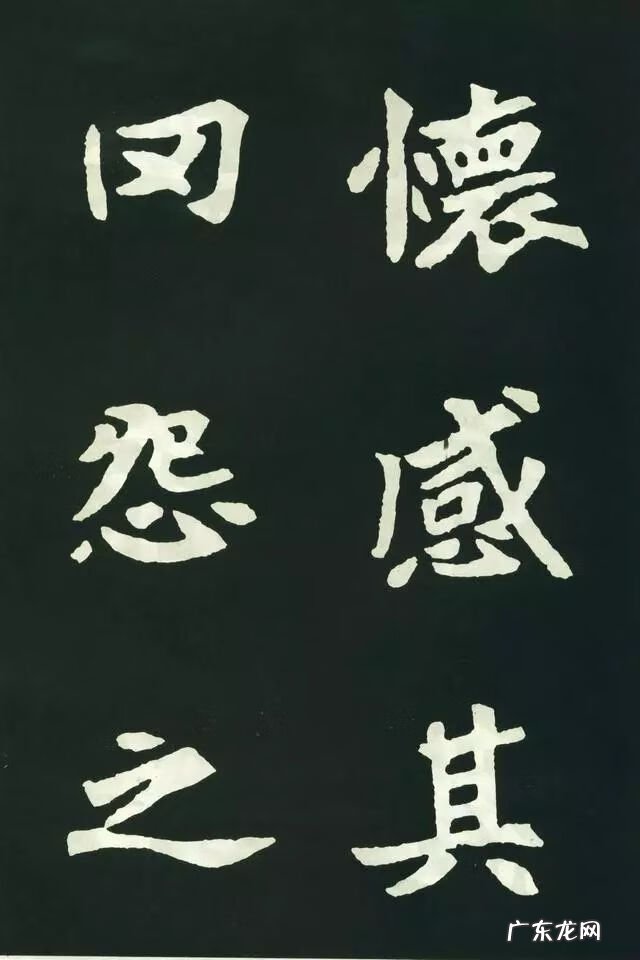 懷感其
怨之
广东龙网